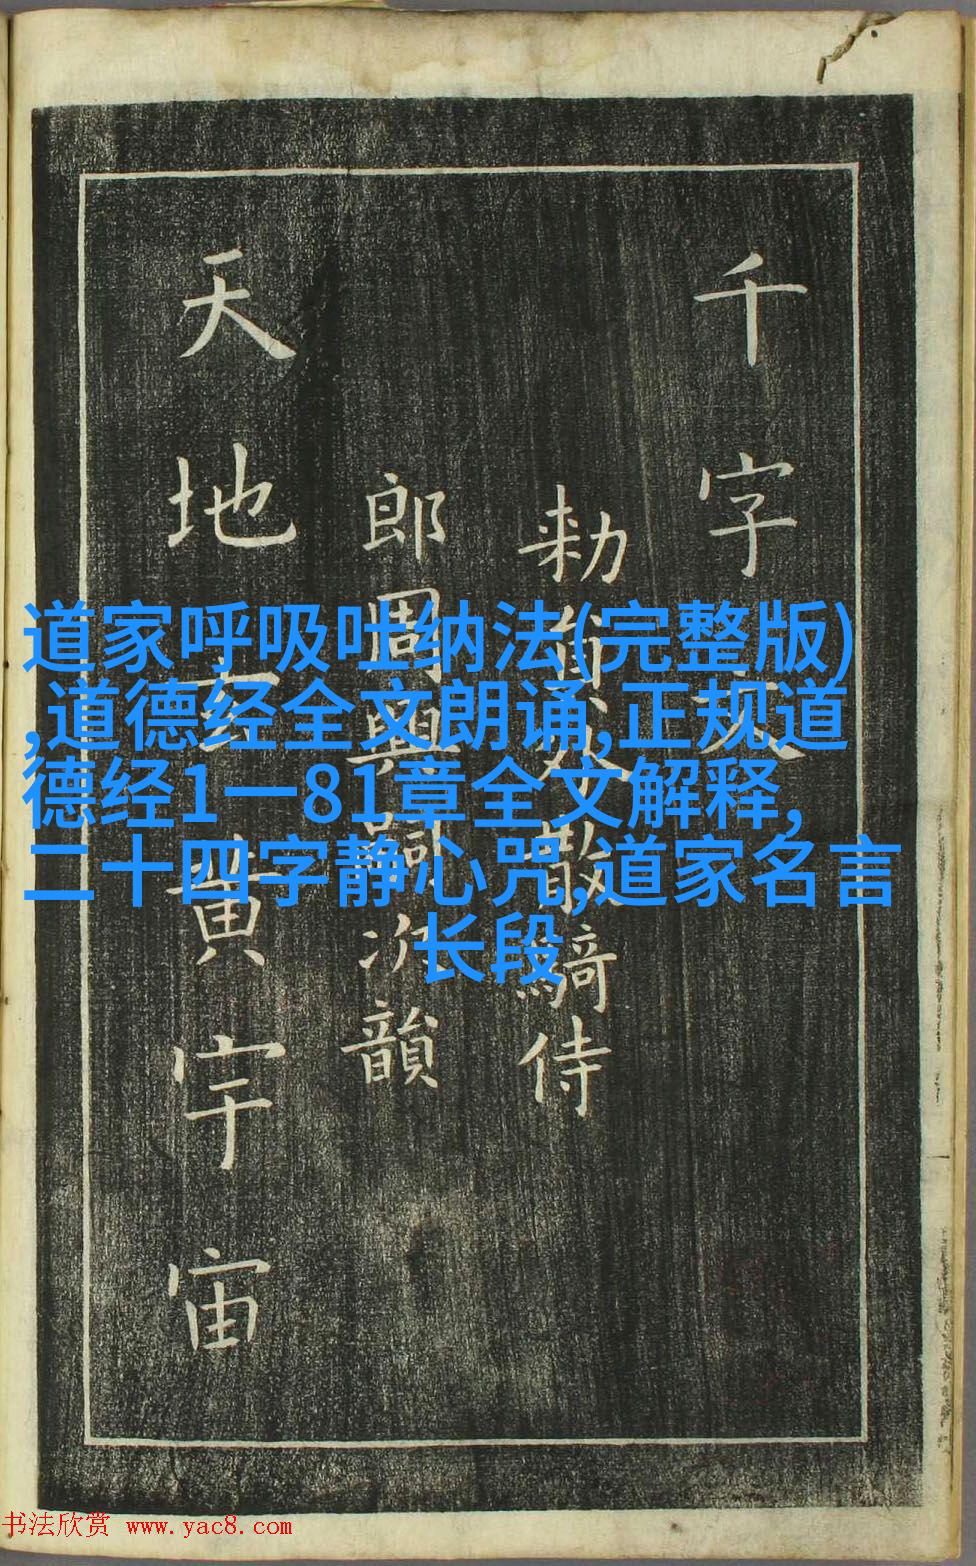 千字文
勑員外散騎侍
郎周興嗣次韻
天地玄黄宇宙
道家呼吸吐纳法(完整版)
,道德经全文朗诵,正规道
德经1一81章全文解释,
二十四字静心咒,道家名言
长段
书法欣赏 www.yac8.com